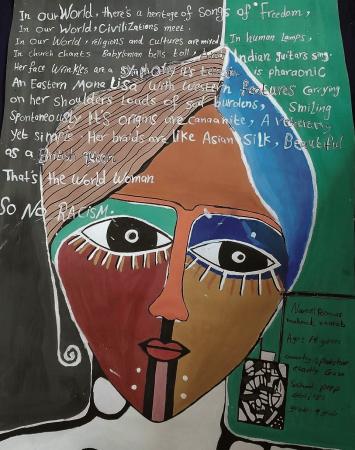 In our World, there's a heritage of songs of Freedom,
In our World, Civilizations meet.
In Our World, religions and cultures are mixed In human Lamps,
In church chants Babylonian bells toll, Indian guitars sing.
Her face Wrinkles are a symphony its is pharaonic
An Eastern Mona Lisa with Western features Carrying
on her shoulders loads of sad burdens, Smiling
Spontaneously Its origins are canaanite, A
Yet simple. Her braids are like Asian Silk, Beautiful
as a British queen
That's the World Woman
So No RACISM.
Name:
Age: years
country:
exactly Gaza
School: prep
girls
grade: